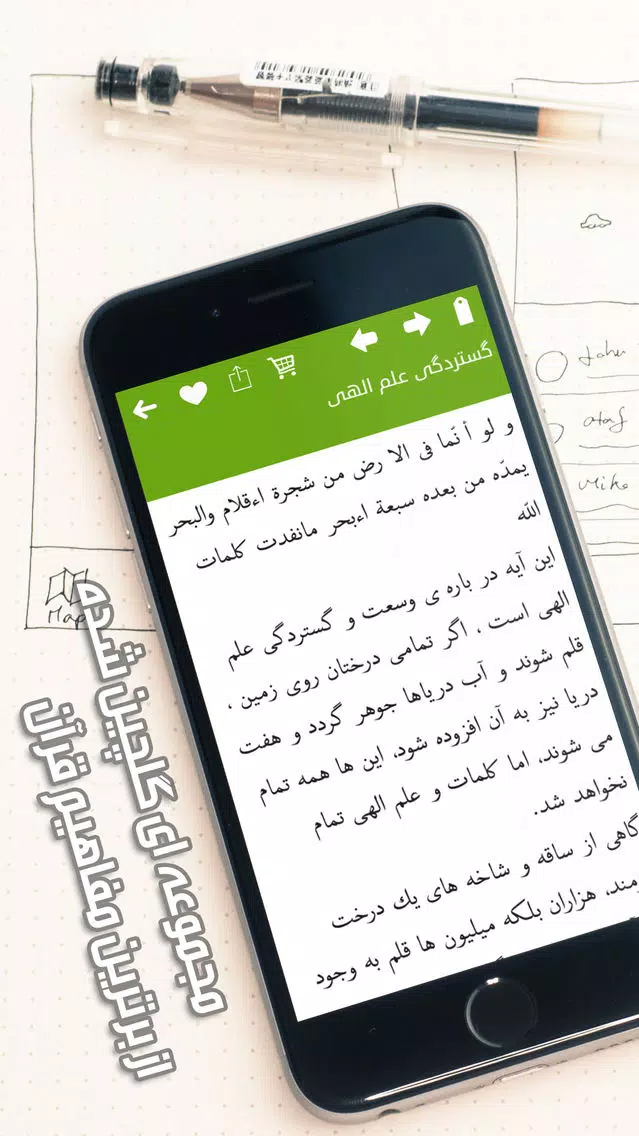 گستردگی علم الهی
و لو أ نّما فی الا رض من شجرة اءقلام والبحر
یمدّه من بعده سبعة اءبحر مانفدت کلمات
اللّه
این آیه در باره ی وسعت و گستردگی علم
الهی است ، اگر تمامی درختان روی زمین ،
قلم شوند و آب دریاها جوهر گردد و هفت
دریا نیز به آن افزوده شود، این ها همه تمام
می شوند، اما کلمات و علم الهی تمام
نخواهد شد.
گاهی از ساقه و شاخه های یك درخت
مند، هزاران بلکه میلیون ها قلم به وجود
مجموعه ای گلچین شده
از برترین مفاهیم قرآن
John
Mike
Map